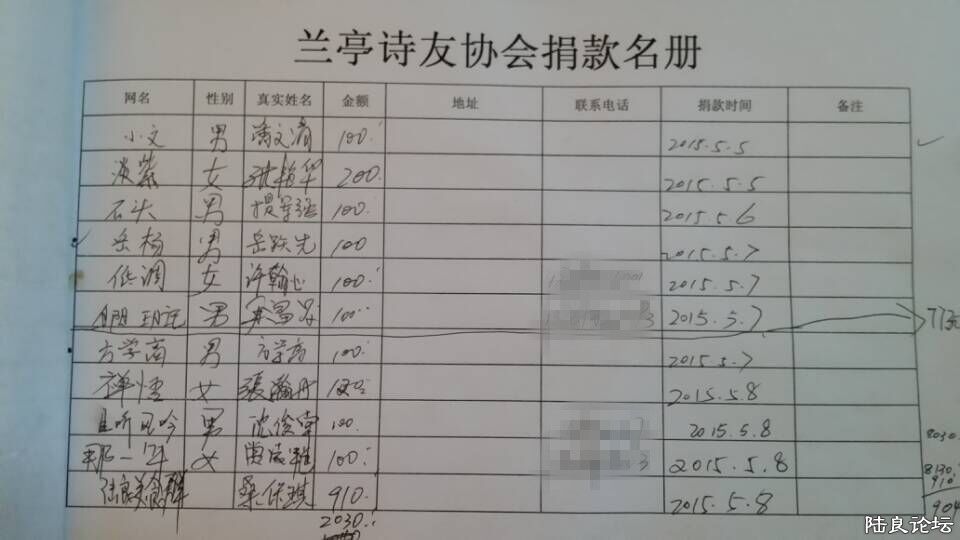 兰亭诗友协会捐款名册
网名 性别 真实姓名 金额 地址 联系电话 捐款时间 备注
小文 男 100 2015.5.5
淡紫 女 200 2015.5.5
石头 男 100 2015.5.6
岳杨 男 岳跃先 100 2015.5.7
低调 女 许翰心 100 2015.5.7
男 100 2015.5.7 77元
方学商 男 方学商 100 2015.5.7
禅悟 女 2015.5.8
且听风吟 男 沈俊掌 100 2015.5.8
8030
那一年 女 100 2015.5.8
8130
陆良美食群 桑保琪 910 2015.5.8
910
2030
904
陆良论坛